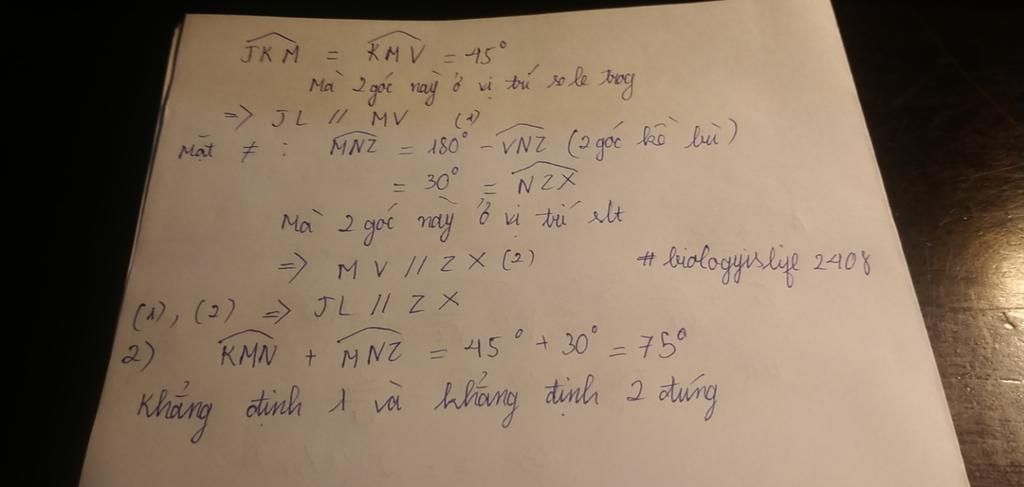 JKM = KMV = 45°
Mà 2 góc này ở vị trí so le trog
=> JL // MV (1)
Mặt ≠ : MNZ = 180° - VNZ (2 góc kề bù)
= 30° = NZX
Mà 2 góc này ở vị trí slt
=> MV // ZX (2)
#biologyislife2408
(1), (2) => JL // ZX
2) KMN + MNZ = 45° + 30° = 75°
Khẳng định 1 và khẳng định 2 đúng